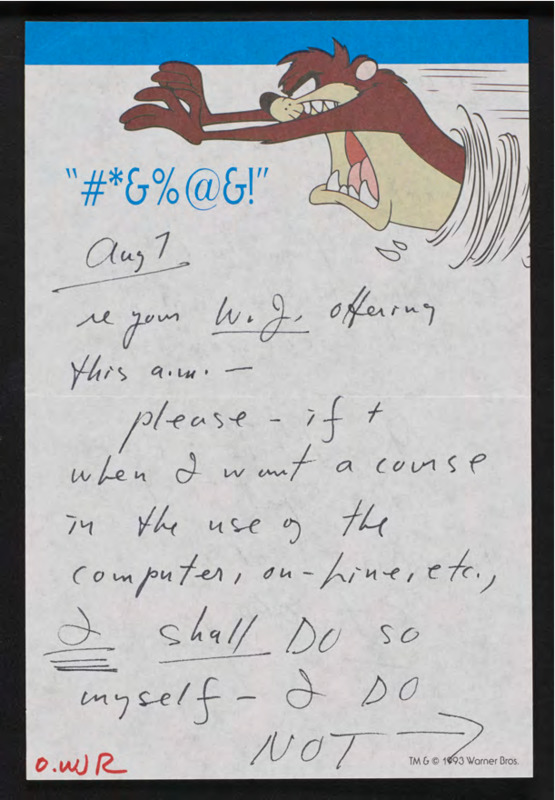 "#*&%@&!"
Aug 7
re your W.J. offering
this a.m. —
please - if +
when I want a course
in the use of the
computer, on-line, etc.,
I shall DO so
myself - I DO
NOT →
O.WR
TM & © 1993 Warner Bros.